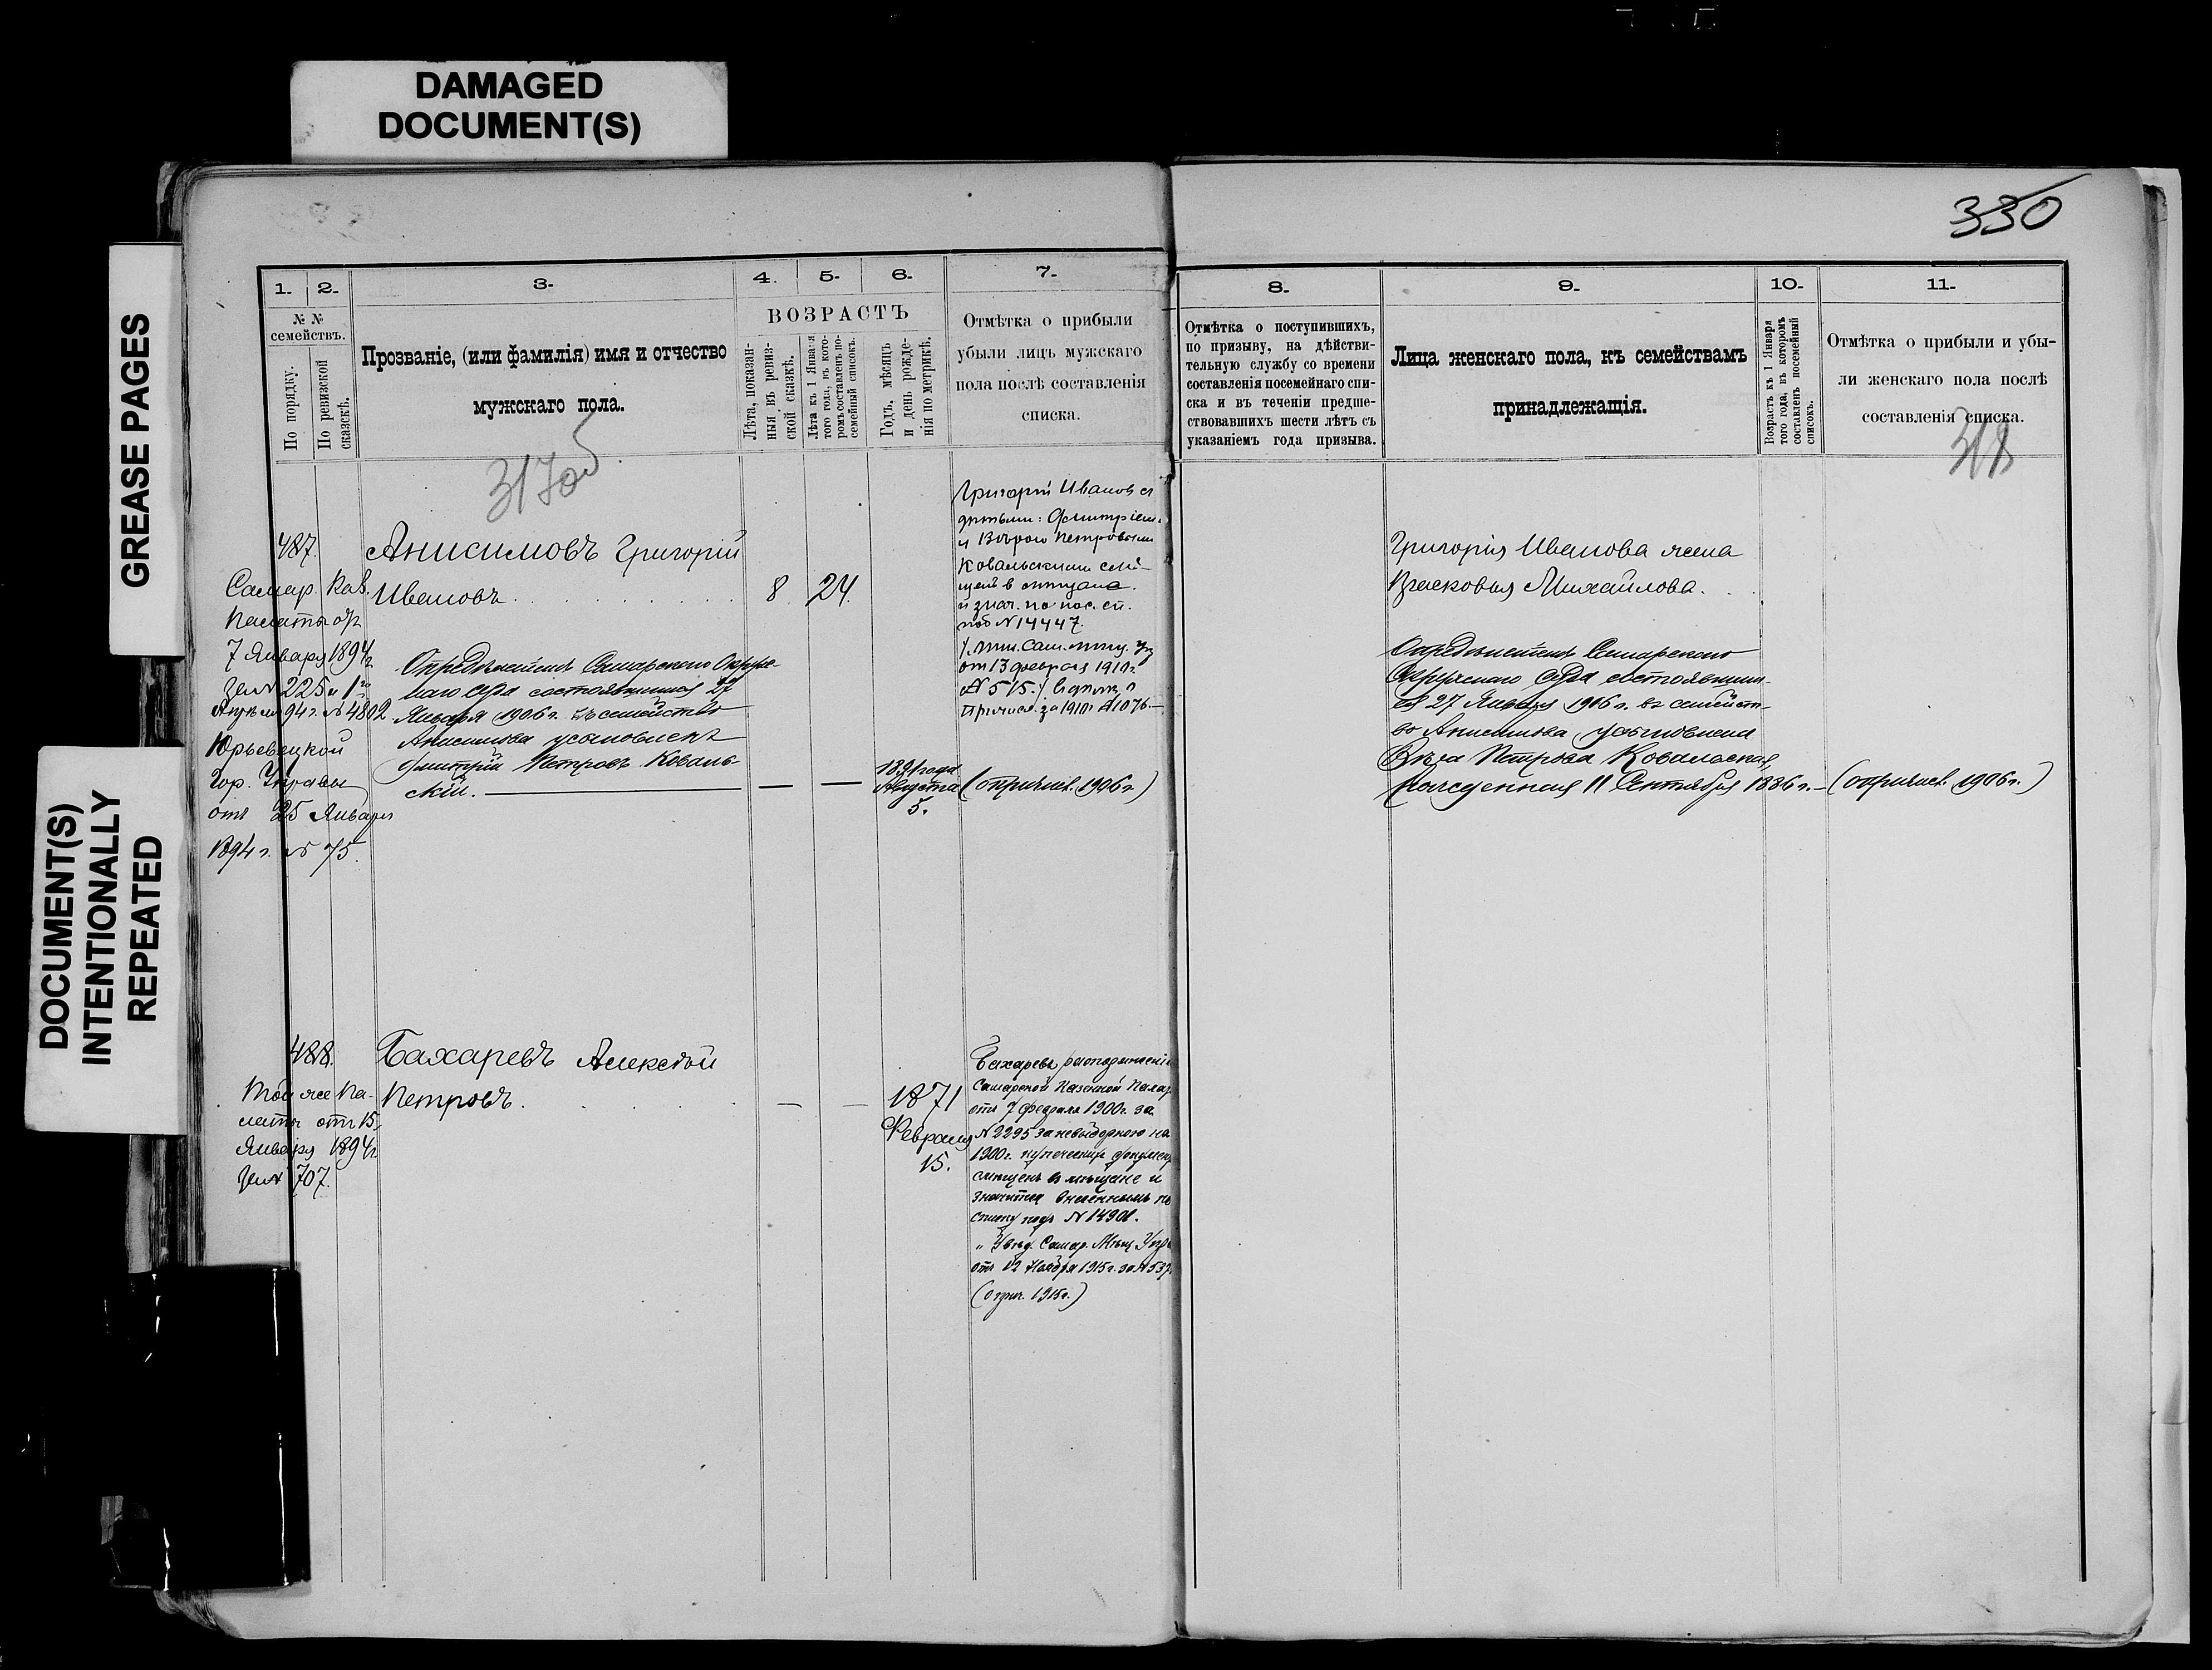 DAMAGED
DOCUMENT(S)
GREASE PAGES
DOCUMENT(S)
INTENTIONALLY
REPEATED
330
1.
2.
3.
4.
5.
6.
7.
№ №
семействъ.
По порядку.
По ревизской
сказкѣ.
Прозваніе, (или фамилія) имя и отчество
мужскаго пола.
ВОЗРАСТЪ
Лѣта, показан-
ныя въ ревиз-
ской сказкѣ.
Лѣта къ 1 Января
того года, въ кото-
ромъ составленъ по-
семейный список.
Годъ, мѣсяцъ
и день рожде-
нія по метрикѣ.
Отмѣтка о прибыли
убыли лицъ мужскаго
пола послѣ составленія
списка.
317об
487.
Самар. Каз.
Палаты отъ
7 Января 1894 г.
за № 225 и 1го
Апрѣля 94 г. № 4802
Юрьевецкой
Гор. Управы
отъ 25 Января
1894 г. № 75.
Анисимовъ Григорій
Ивановъ
8
24.
Опредѣленіемъ Самарскаго Окруж-
наго Суда состоявшимся 27
Января 1906 г. въ семейство
Анисимова усыновленъ
Дмитрій Петровъ Коваль-
скій.
1891 года
Августа
5.
Григорій Ивановъ съ
дѣтьми: Дмитріемъ
и Вѣрою Петровыми
Ковальскими
и знач. по пос. сп.
под № 14447.
от 13 февраля 1910 г.
№ 515.
Причисл. за 1910 г. № 1076
(опричисл. 1906 г.)
488.
Той же Па-
латы отъ 15
Января 1894 г.
за № 707.
Бахаревъ Алексѣй
Петровъ.
1871
Февраля
15.
Бахаревъ, распоряженіе
Самарской Казенной Палат
отъ 7 февраля 1900 г. за
№ 2295 за невыборкою на
1900 г. купеческих докумен
въ мѣщане и
значится внесеннымъ по
списку подъ № 14901.
Увѣд. Самар. Мѣщ. Упр
отъ 12 Ноября 1915 г. за № 537
(о прич. 1915 г.)
8.
9.
10.
11.
Отмѣтка о поступившихъ,
по призыву, на дѣйстви-
тельную службу со времени
составленія посемейнаго спи-
ска и въ теченіи предше-
ствовавшихъ шести лѣтъ съ
указаніемъ года призыва.
Лица женскаго пола, къ семействамъ
принадлежащія.
Возрастъ къ 1 Января
того года, въ которомъ
составленъ посемейный
списокъ.
Отмѣтка о прибыли и убы-
ли женскаго пола послѣ
составленія списка.
318
Григорія Иванова жена
Прасковья Михайлова.
Опредѣленіемъ Самарскаго
Окружнаго Суда состоявшим-
ся 27 Января 1906 г. въ семейст-
во Анисимова, усыновлена
Вѣра Петрова Ковальская,
рожденная 11 Сентября 1886 г.
(опричисл. 1906 г.)